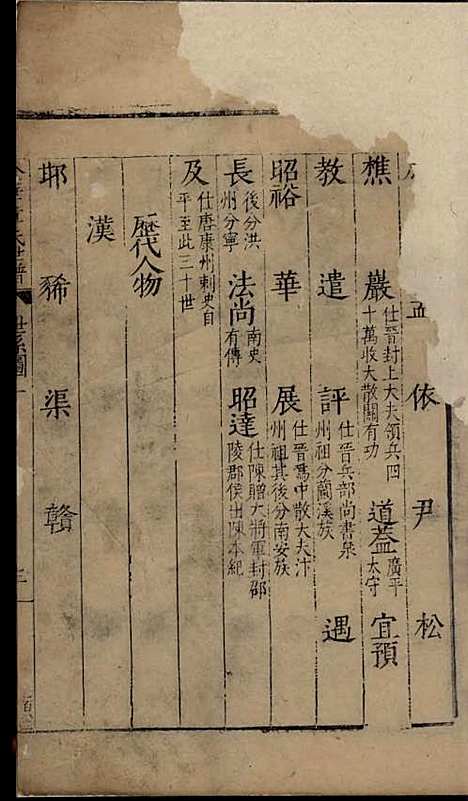 孟依尹松
樵巖仕晉封上大夫領兵四十萬收大散關有功道蓋廣平太守宜預
教遣評仕晉兵部尚書泉州祖分蘭溪族遇
昭裕華展仕晉爲中散大夫汴州祖其後分南安族
長後分洪州分寧法尚南史有傳昭達仕陳贈大將軍封邵陵郡侯出陳本紀
及仕唐康州刺史自平至此三十世
歷代人物
漢
邯豨渠贛
世系圖